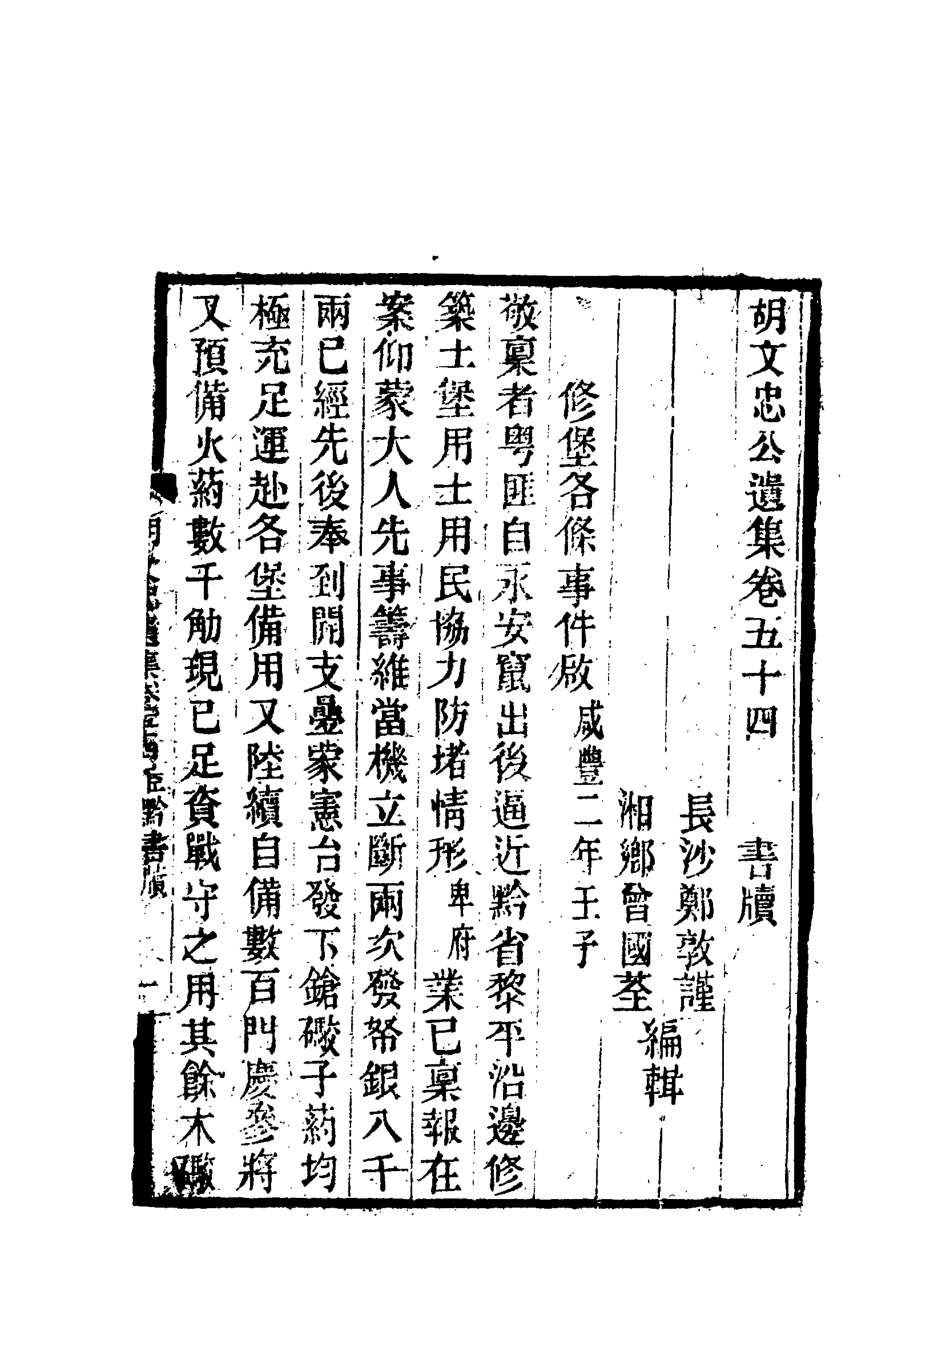 胡文忠公遺集卷五十四　書牘
長沙鄭敦謹
湘鄉曾國荃
編輯
修堡各條事件啟 咸豐二年壬子
敬稟者粵匪自永安竄出後逼近黔省黎平沿邊修
築土堡用士用民協力防堵情形卑府業已稟報在
案仰蒙大人先事籌維當機立斷兩次發帑銀八千
兩已經先後奉到開支疊蒙憲台發下鎗礮子葯均
極充足運赴各堡備用又陸續自備數百門慶參將
又預備火葯數千觔現已足資戰守之用其餘木礮
遺集卷五十四 黔書牘 一